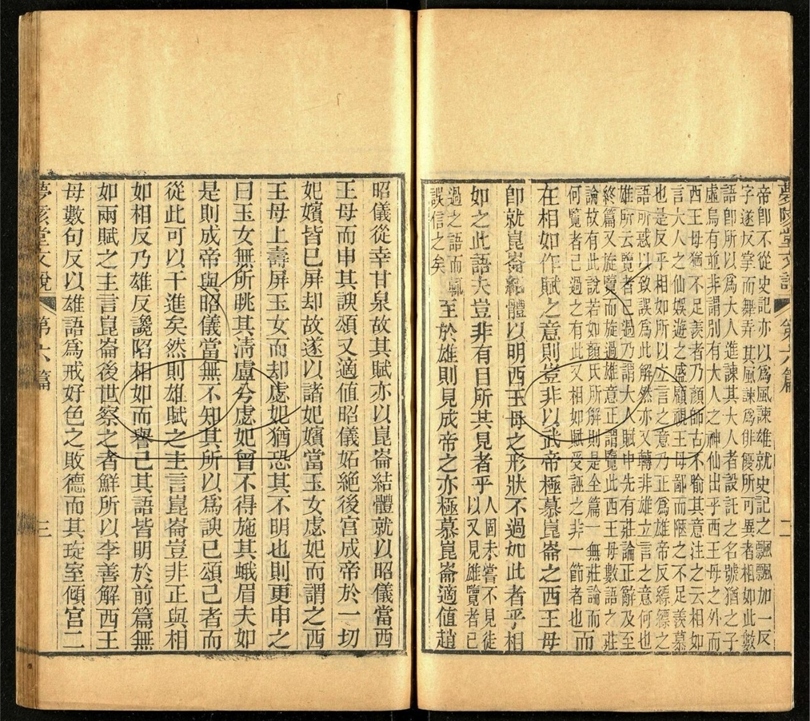 夢陔堂文說 第六篇 二
帝卽不從史記亦以爲風諫雄就史記之飄飄加一反
字遂反掌而舞弄其風諫爲俳優所可異者相如此數
語卽所以爲大人進諫其大人者設託之名號猶之子
虛烏有並非謂別有大人之神仙出乎西王母之外而
西王母猶不足羨者乃顏師古不喻其意注之云相如
言大人之仙娛遊之盛顧視王母鄙而陋之不足羨慕
也是反乎相如所以立言之意乃正爲雄帝反縹縹之
語所惑以致誤爲此解然亦又轉非雄立言之意何也
雄所云覽者已過乃謂大人賦中先有莊論正辭及至
終篇又旋覽而旋過雄意正謂覽此西王母數語之莊
論故有此說若如顏氏所解則是全篇一無莊論而
何覽者已過之有此又相如賦受誣之非一節者也而
在相如作賦之意則豈非以武帝極慕崑崙之西王母
卽就崑崙紀體以明西王母之形狀不過如此者乎相
如之此語夫豈非有目所共見者乎人固未嘗不見徒以又見雄覽者已
過之語而輒誤信之矣至於雄則見成帝之亦極慕崑崙適值趙
昭儀從幸甘泉故其賦亦以崑崙結體就以昭儀當西
王母而申其諛頌又適值昭儀妬絶後宮成帝於一切
妃嬪皆已屏却故遂以諸妃嬪當玉女虙妃而謂之西
王母上壽屏玉女而却虙妃猶恐其不明也則更申之
曰玉女無所眺其淸盧兮虙妃曾不得施其蛾眉夫如
是則成帝與昭儀當無不知其所以爲諛已頌己者而
從此可以干進矣然則雄賦之主言崑崙豈非正與相
如相反乃雄反讒陷相如而譽己其語皆明於前篇無
如兩賦之主言崑崙後世察之者鮮所以李善解西王
母數句反以雄語爲戒好色之敗德而其琁室傾宮二
夢陔堂文說 第六篇 三